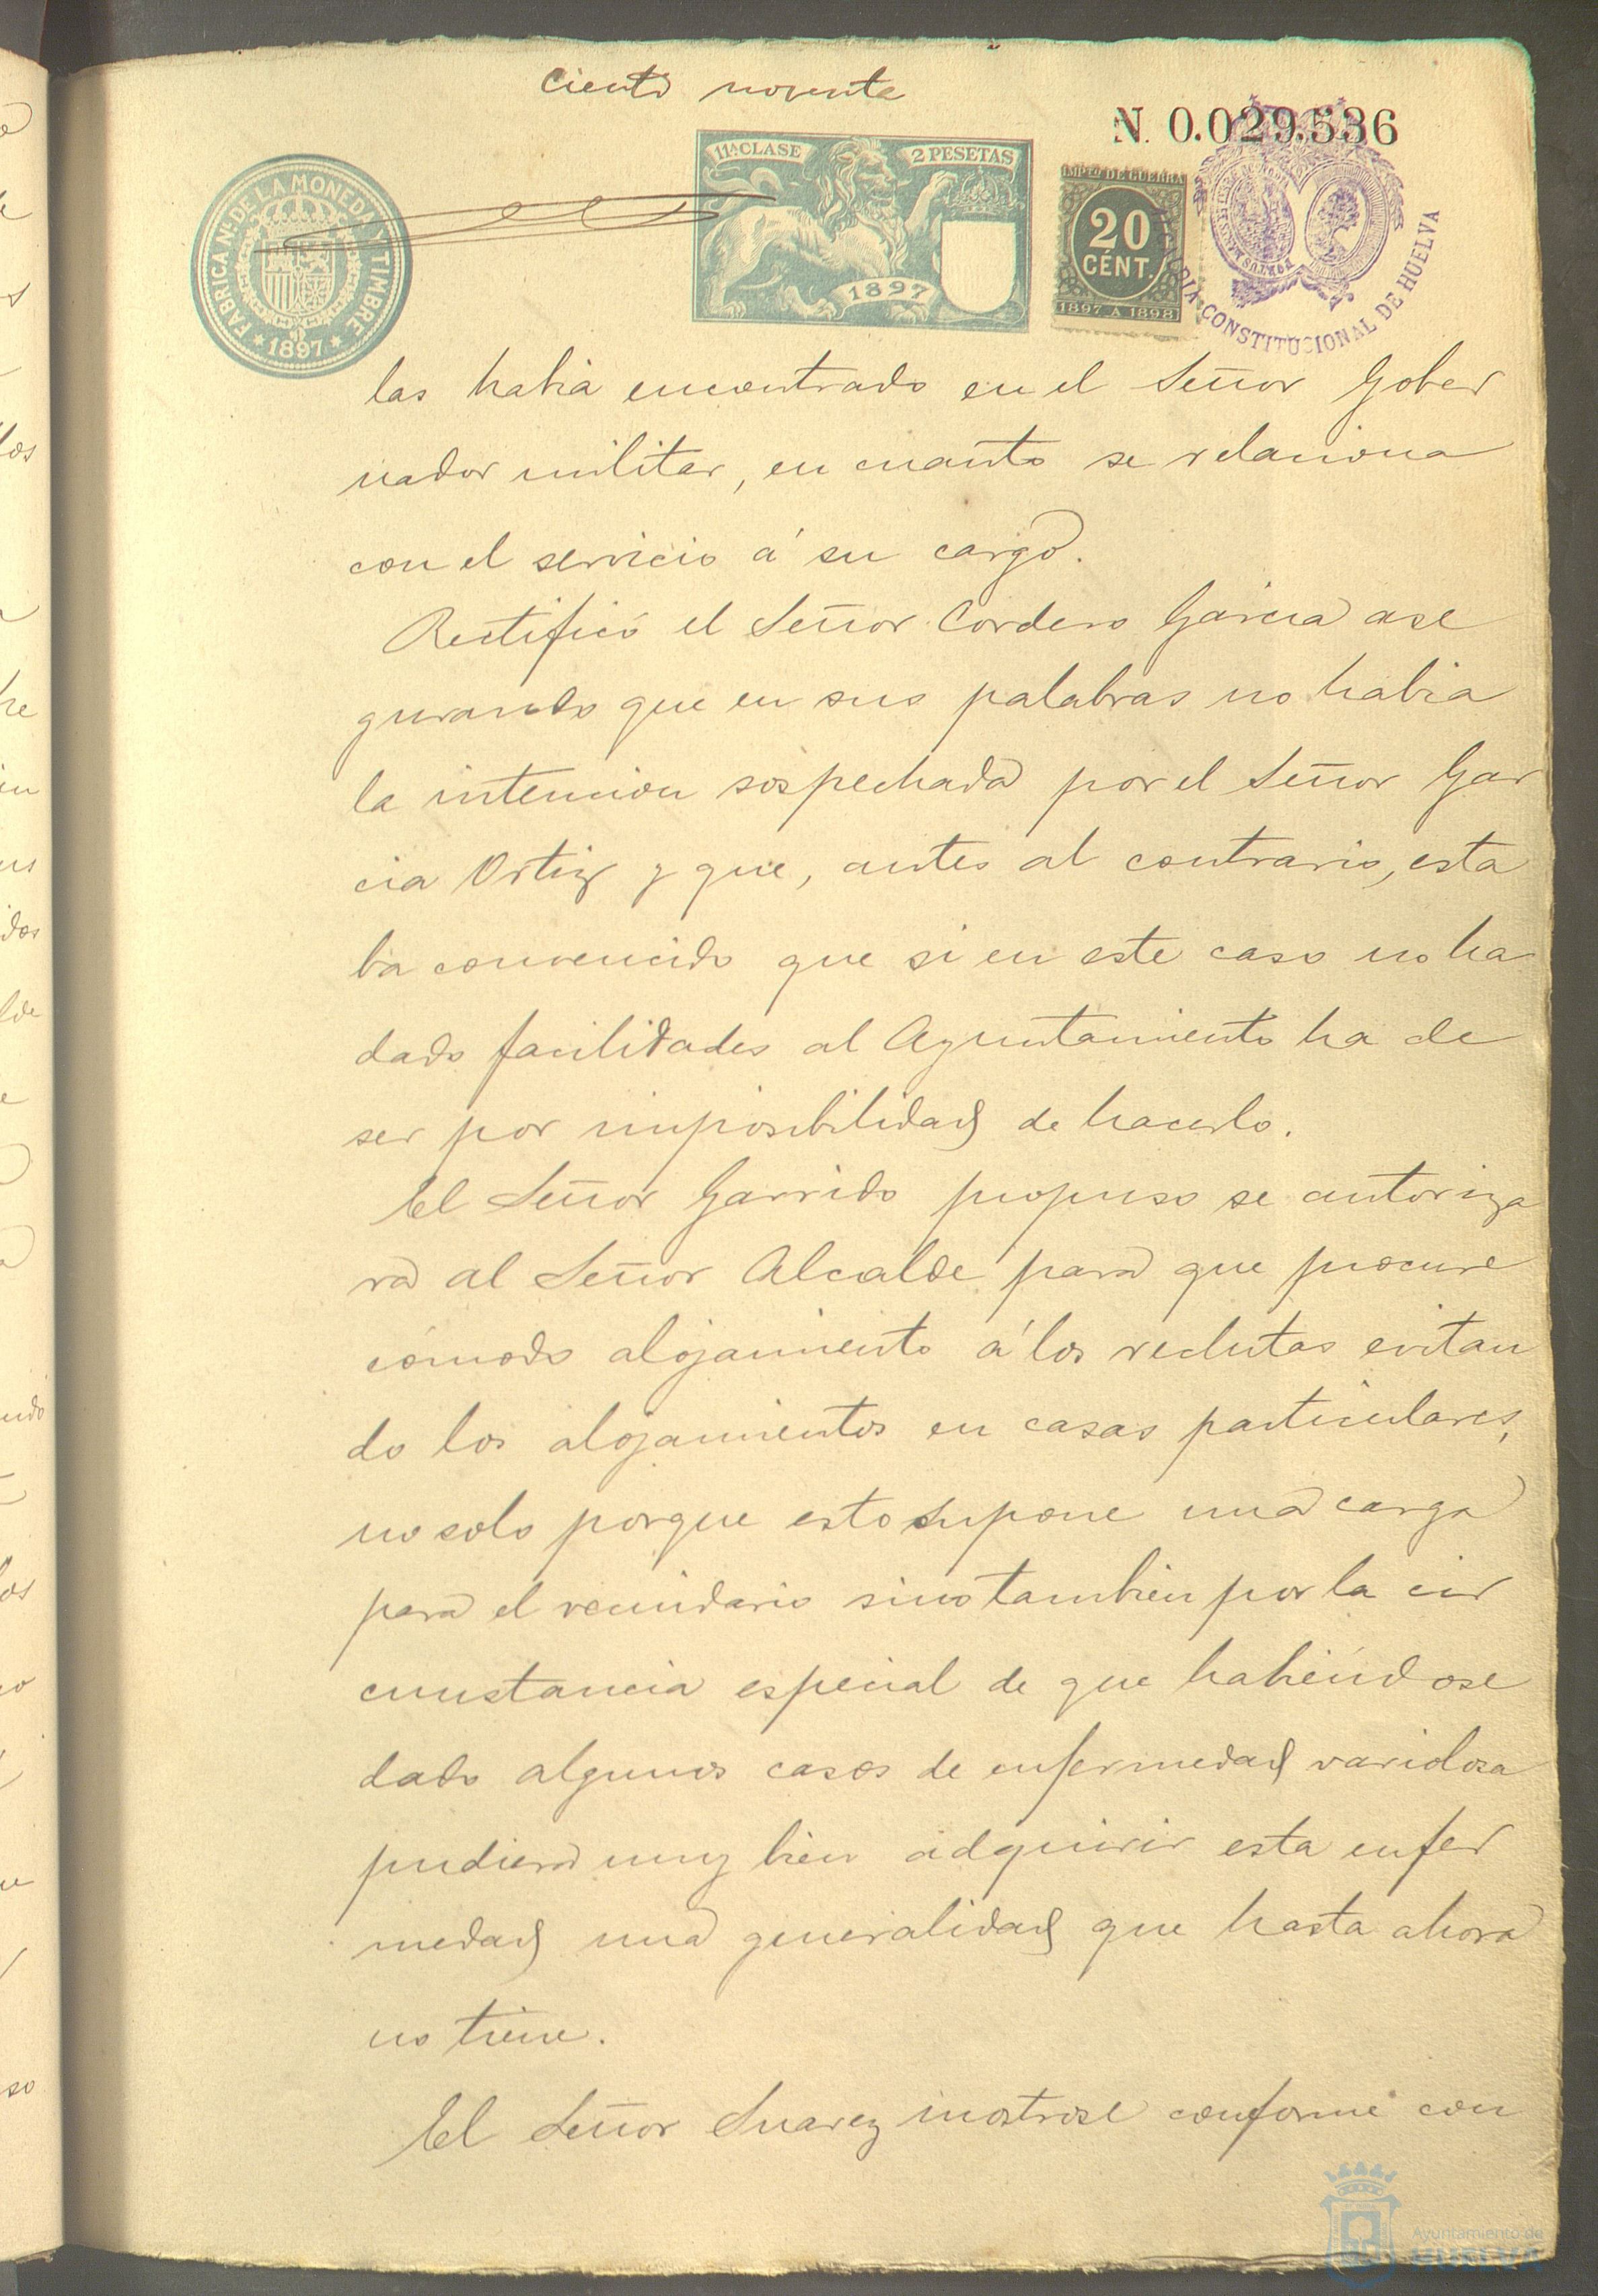 ciento noventa
N. 0.029.536
11ª CLASE 2 PESETAS
1897
FABRICA Nl. DE LA MONEDA Y TIMBRE
* 1897 *
IMPTO DE GUERRA
20
CENT.
1897 A 1898
ALCALDIA CONSTITUCIONAL DE HUELVA
las habia encontrado en el Señor Gober
nador militar, en cuanto se relaciona
con el servicio á su cargo.
Rectificó el Señor Cordero Garcia ase
gurando que en sus palabras no habia
la intencion sospechada por el Señor Gar
cia Ortiz y que, antes al contrario, esta
ba convencido que si en este caso no ha
dado facilidades al Ayuntamiento ha de
ser por imposibilidad de hacerlo.
El Señor Garrido propuso se autoriza
ra al Señor Alcalde para que procure
cómodo alojamiento á los reclutas evitan
do los alojamientos en casas particulares,
no solo porque esto supone una carga
para el vecindario sino tambien por la cir
cunstancia especial de que habiéndose
dado algunos casos de enfermedad variolosa
pudiera muy bien adquirir esta enfer
medad una generalidad que hasta ahora
no tiene.
El Señor Suarez mostrose conforme con
Ayuntamiento de
HUELVA